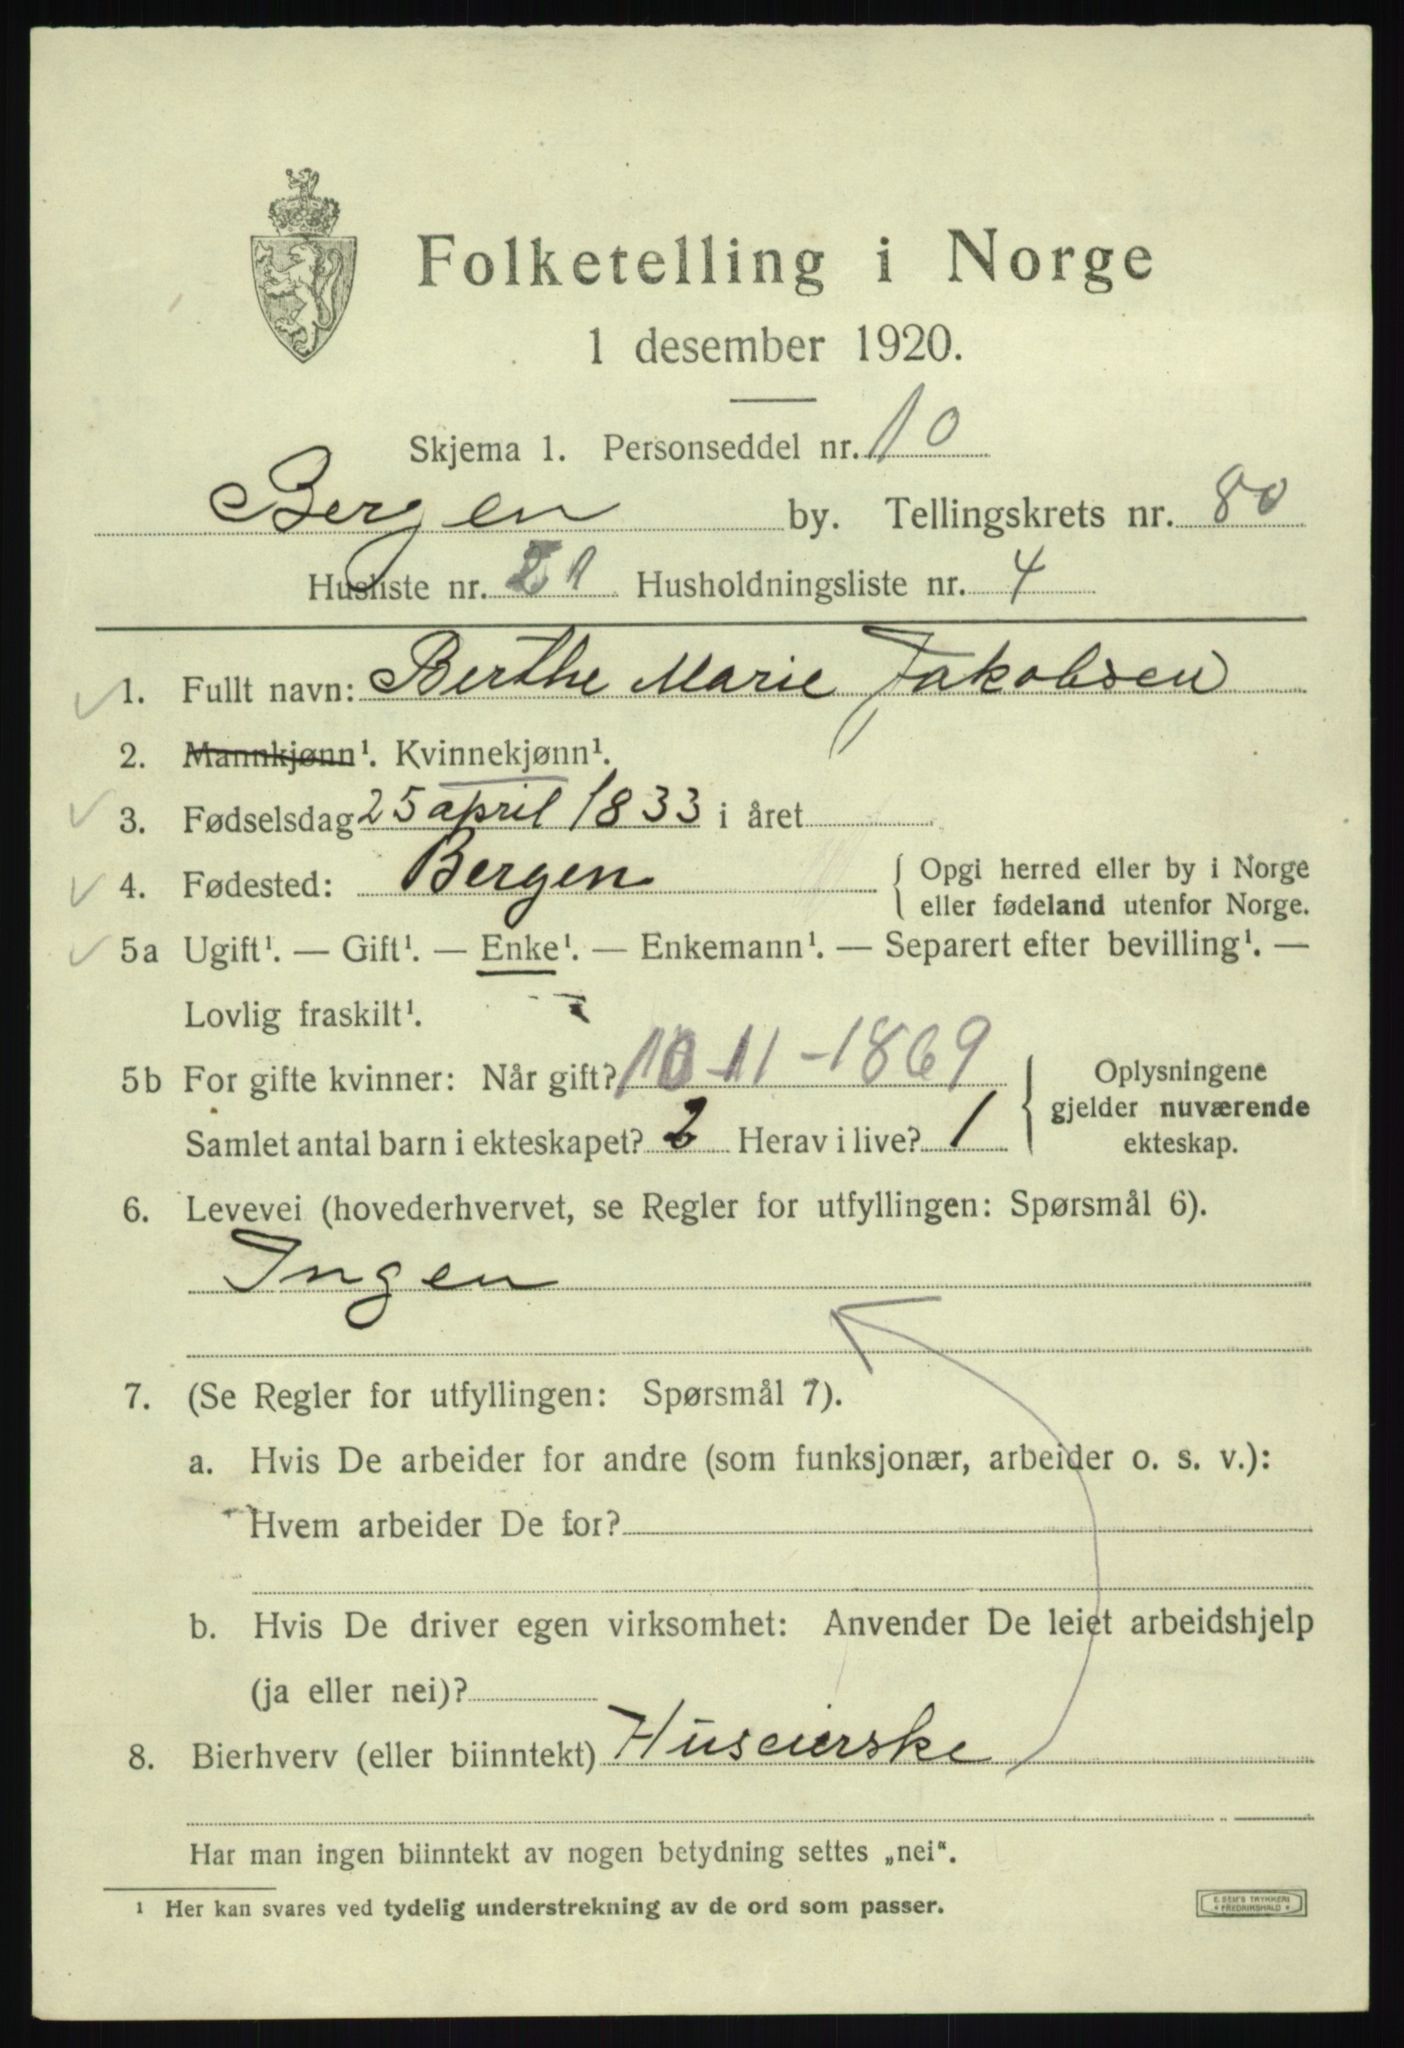 Folketelling i Norge
1 desember 1920.
Skjema 1. Personseddel nr. 10
Bergen by. Tellingskrets nr. 80
Husliste nr. 21 Husholdningsliste nr. 4
1. Fullt navn: Berthe Marie Jakobsen
2. Mannkjønn¹. Kvinnekjønn¹.
3. Fødselsdag 25 april 1833 i året
4. Fødested: Bergen { Opgi herred eller by i Norge
eller fødeland utenfor Norge.
5a Ugift¹. — Gift¹. — Enke¹. — Enkemann¹. — Separert efter bevilling¹. —
Lovlig fraskilt¹.
5b For gifte kvinner: Når gift? 10-11-1869
Samlet antal barn i ekteskapet? 2 Herav i live? 1
Oplysningene
gjelder nuværende
ekteskap.
6. Levevei (hovederhvervet, se Regler for utfyllingen: Spørsmål 6).
Ingen
7. (Se Regler for utfyllingen: Spørsmål 7).
a. Hvis De arbeider for andre (som funksjonær, arbeider o. s. v.):
Hvem arbeider De for?
b. Hvis De driver egen virksomhet: Anvender De leiet arbeidshjelp
(ja eller nei)?
8. Bierhverv (eller biinntekt) Huseierske
Har man ingen biinntekt av nogen betydning settes „nei“.
¹ Her kan svares ved tydelig understrekning av de ord som passer.
E. SEM'S TRYKKERI
• FREDRIKSHALD •